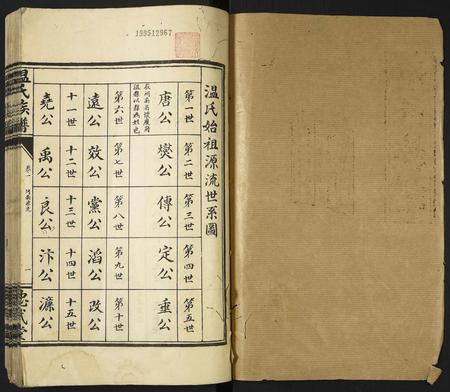 199512967
溫氏始祖源流世系圖
第一世 第二世 第三世 第四世 第五世
唐公 燮公 傳公 定公 垂公
第六世 第七世 第八世 第九世 第十世
遠公 效公 黨公 滔公 政公
十一世 十二世 十三世 十四世 十五世
堯公 禹公 良公 汴公 濂公
溫氏族譜
卷一
一